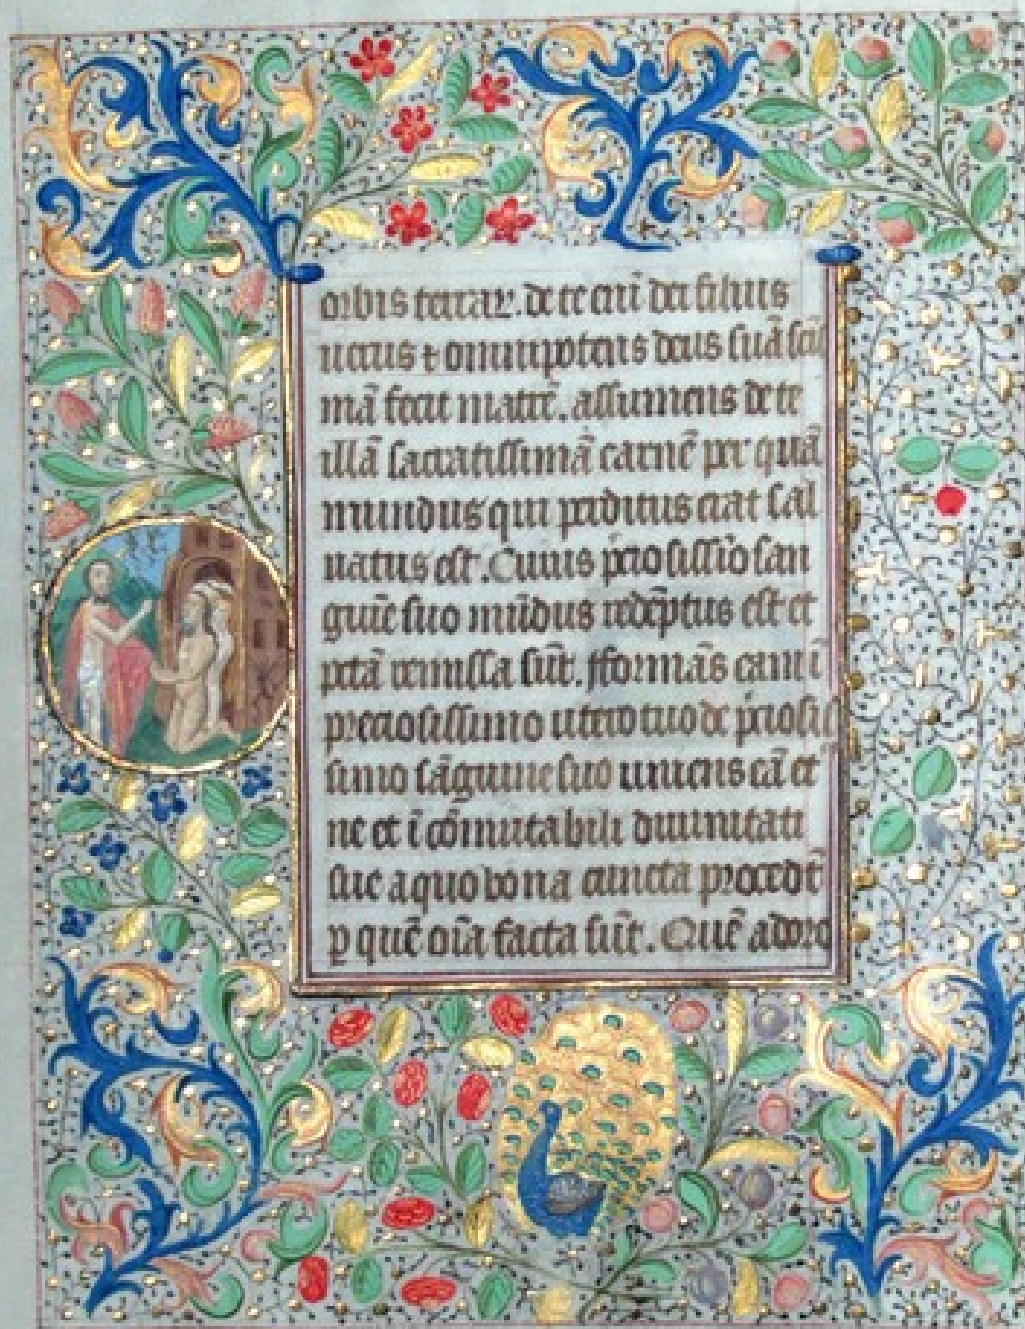 orbis terraꝝ. de te eni̅ dei filius
uerus ⁊ omnipotens deus sua̅ scissi
ma̅ fecit matre̅. assumens de te
illa̅ sacratissima̅ carne̅ per qua̅
mundus qui perditus erat sal
uatus est. Cuius p̍cio sissi̅o san
guie̅ suo mu̅dus rede̅ptus est et
pctā remissa su̅t. fformās eam i̅
preciosissimo utero tuo de p̍ciosis
simo sa̅guine suo uniens ea̅ et
ne et i̅co̅mutabili diuinitati
sue a quo bona cuncta procedu̅t
ꝑ que̅ oi̅a facta su̅t. Que̅ adoro